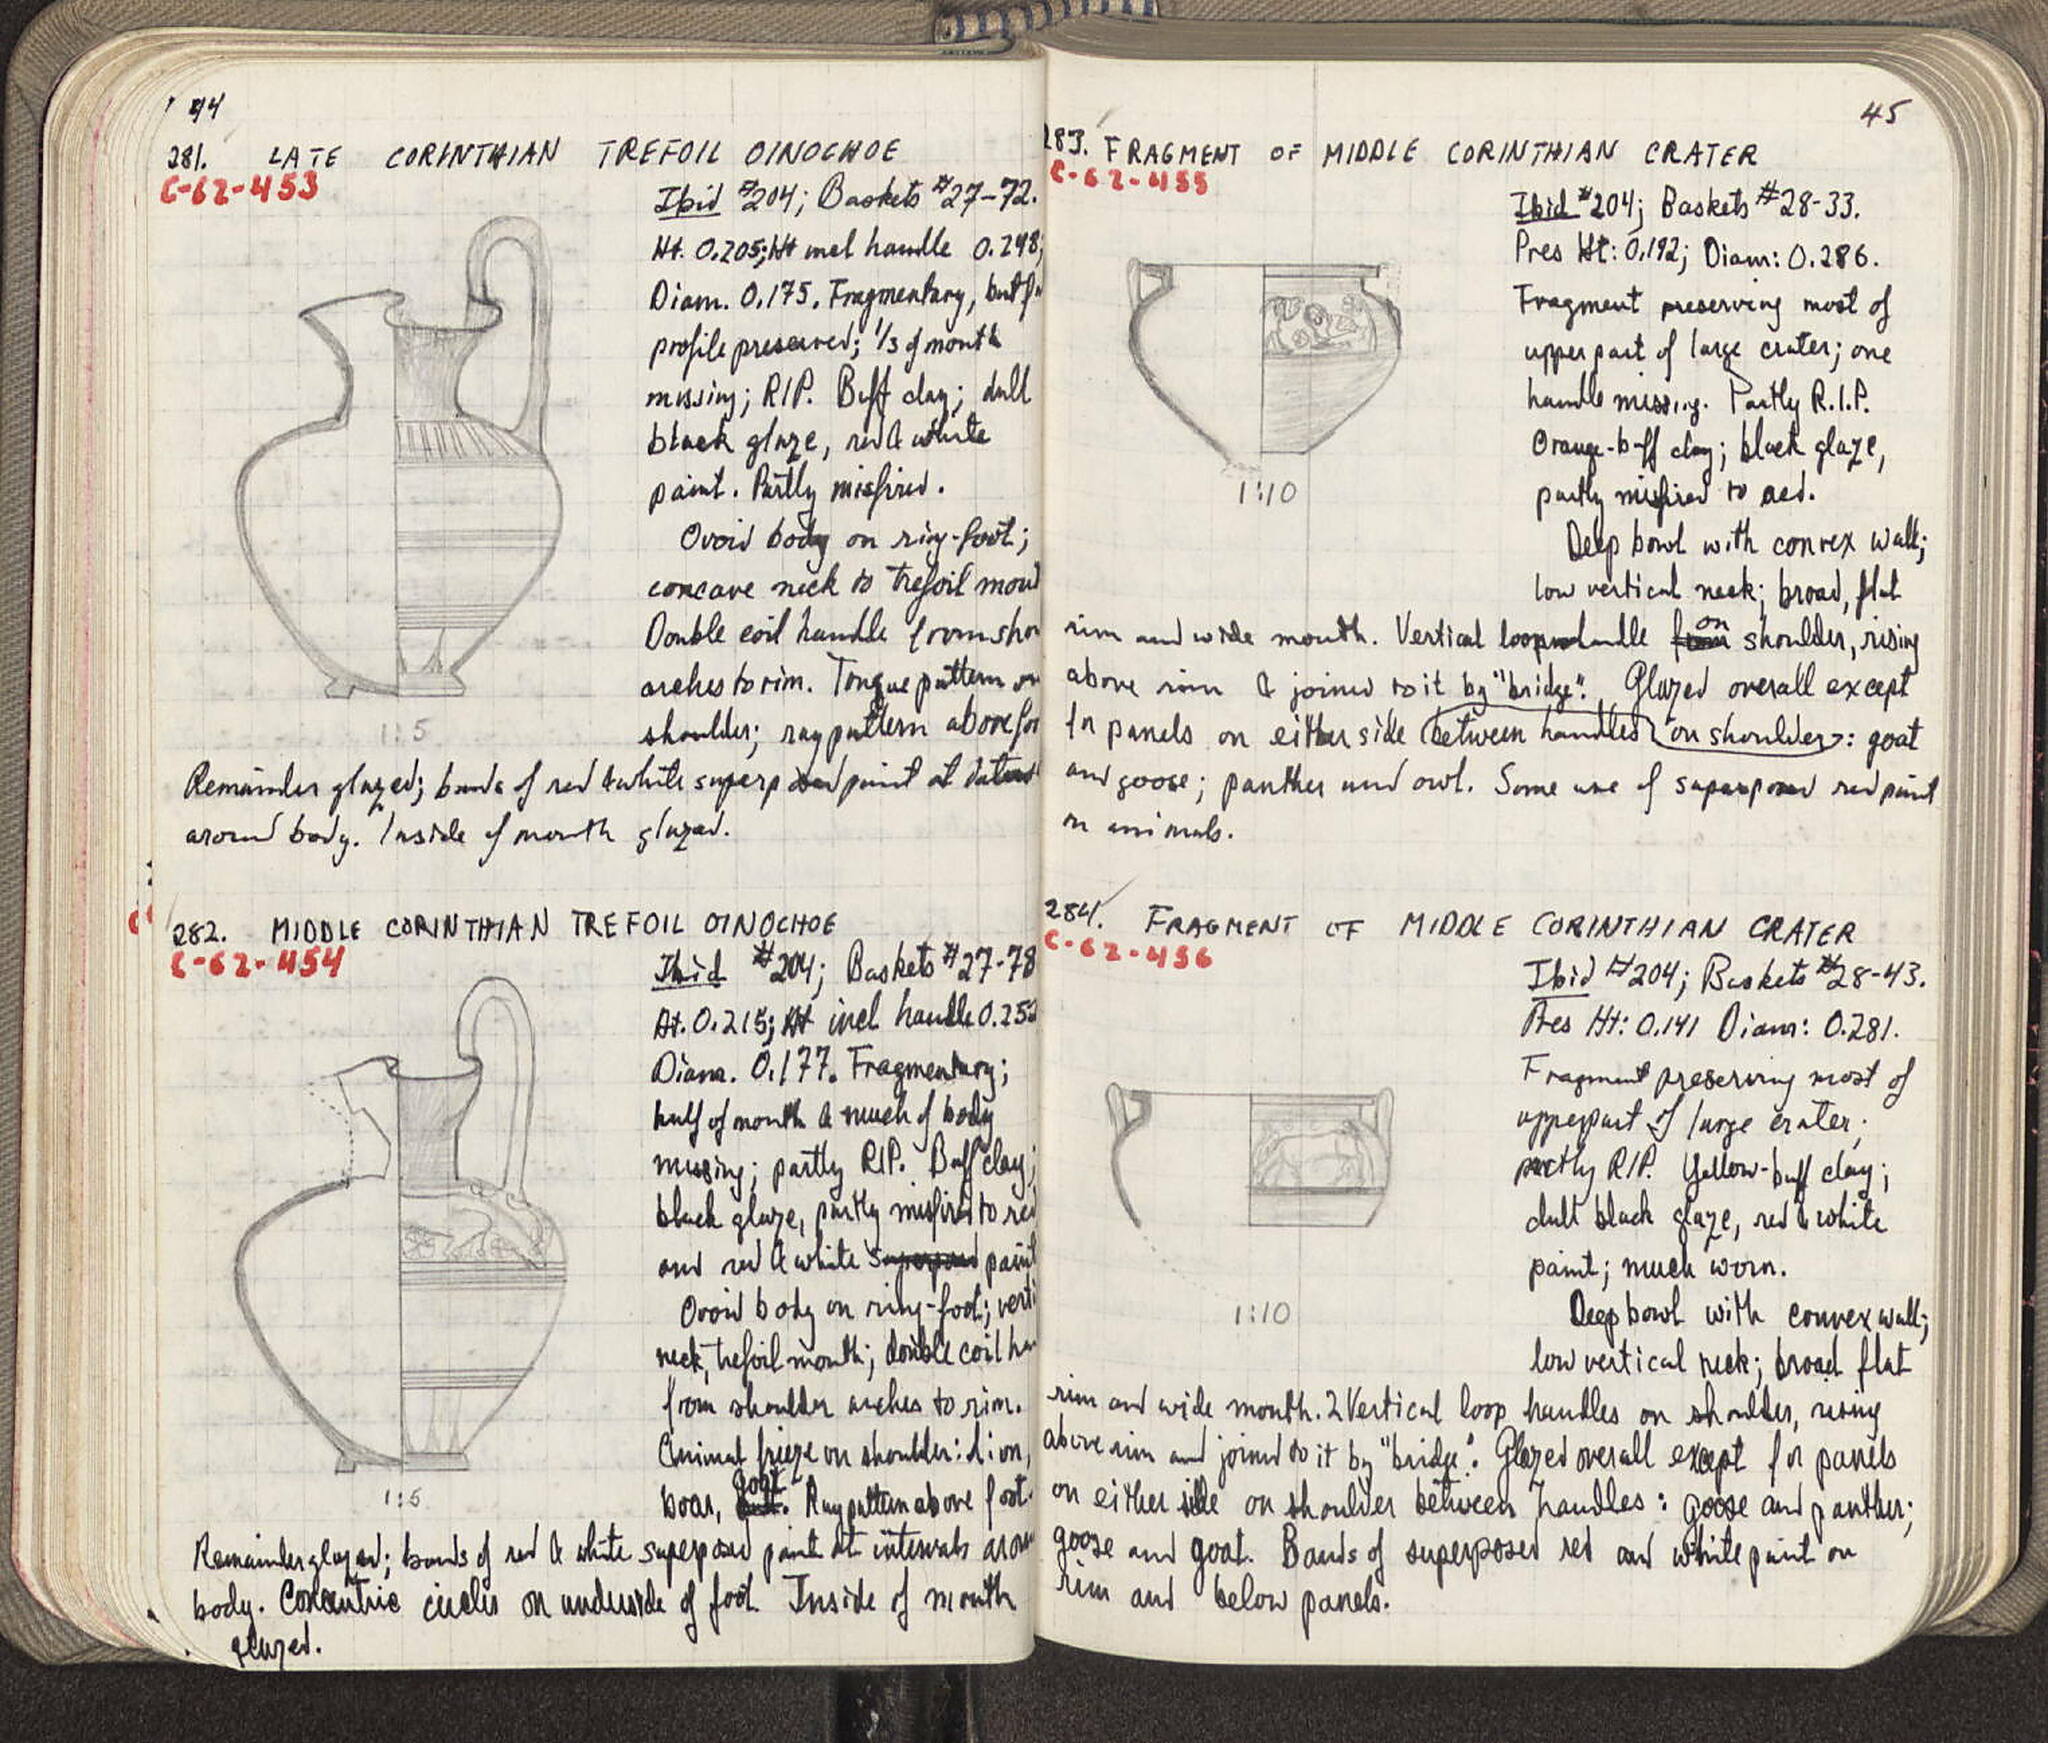 44
281. LATE CORINTHIAN TREFOIL OINOCHOE
C-62-453
Ibid #204; Baskets #27-72.
Ht. 0.205; Ht incl handle 0.248;
Diam. 0.175. Fragmentary, but
profile preserved; 1/3 of mouth
missing; RIP. Buff clay; dull
black glaze, red & white
paint. Partly misfired.
Ovoid body on ring-foot;
concave neck to trefoil
Double coil handle from
arches to rim. Tongue pattern on
shoulder; ray pattern above
1:5
Remainder glazed; bands of red & white superposed paint at
around body. Inside of mouth glazed.
282. MIDDLE CORINTHIAN TREFOIL OINOCHOE
C-62-454
Ibid #204; Baskets #27-78
Ht. 0.215; Ht incl handle
Diam. 0.177. Fragmentary;
half of mouth & much of body
missing; partly RIP. Buff clay;
black glaze, partly misfired to red
and red & white superposed paint
Ovoid body on ring-foot;
neck, trefoil mouth; double coil
from shoulder arches to rim.
Animal frieze on shoulder: lion,
boar, goat. Ray pattern above foot.
1:5
Remainder glazed; bands of red & white superposed paint at intervals
body. Concentric circles on underside of foot. Inside of mouth
glazed.
45
283. FRAGMENT OF MIDDLE CORINTHIAN CRATER
C-62-455
Ibid #204; Baskets #28-33.
Pres Ht: 0.192; Diam: 0.286.
Fragment preserving most of
upper part of large crater; one
handle missing. Partly R.I.P.
Orange-buff clay; black glaze,
partly misfired to red.
1:10
Deep bowl with convex wall;
low vertical neck; broad, flat
rim and wide mouth. Vertical loop handle from on shoulder, rising
above rim & joined to it by "bridge". Glazed overall except
for panels on either side between handles on shoulder: goat
and goose; panther and owl. Some use of superposed red paint
on animals.
284. FRAGMENT OF MIDDLE CORINTHIAN CRATER
C-62-456
Ibid #204; Baskets #28-43.
Pres Ht: 0.141 Diam: 0.281.
Fragment preserving most of
upper part of large crater;
partly RIP. Yellow-buff clay;
dull black glaze, red & white
paint; much worn.
1:10
Deep bowl with convex wall;
low vertical neck; broad flat
rim and wide mouth. 2 Vertical loop handles on shoulder, rising
above rim and joined to it by "bridge". Glazed overall except for panels
on either side on shoulder between handles: goose and panther;
goose and goat. Bands of superposed red and white paint on
rim and below panels.